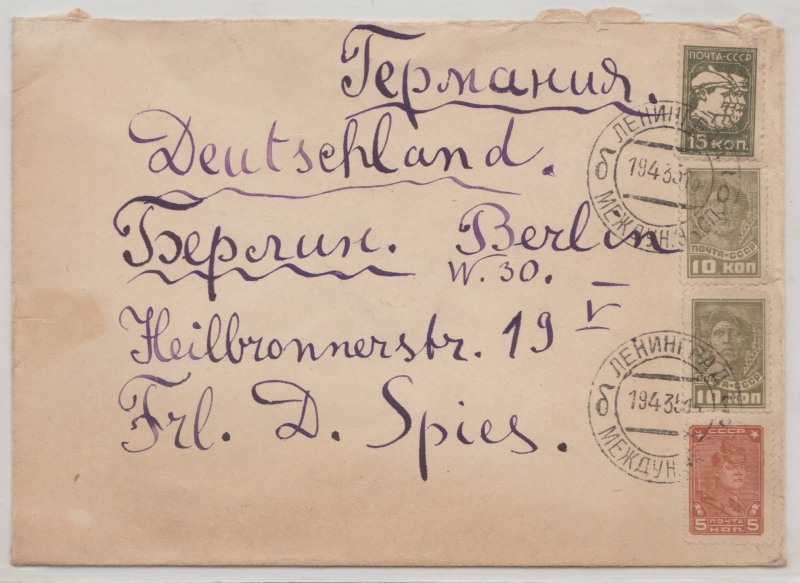 Германия.
Deutschland.
Берлин. Berlin
W. 30.
Heilbronnerstr. 19 V
Frl. D. Spies.
ПОЧТА-СССР
15 КОП.
ЛЕНИНГРАД
б 19435 б
МЕЖДУН.
ПОЧТА-СССР
10 КОП
ПОЧТА-СССР
10 КОП
ЛЕНИНГРАД
б 19435
МЕЖДУН.
СССР
5 ПОЧТА КОП. 5